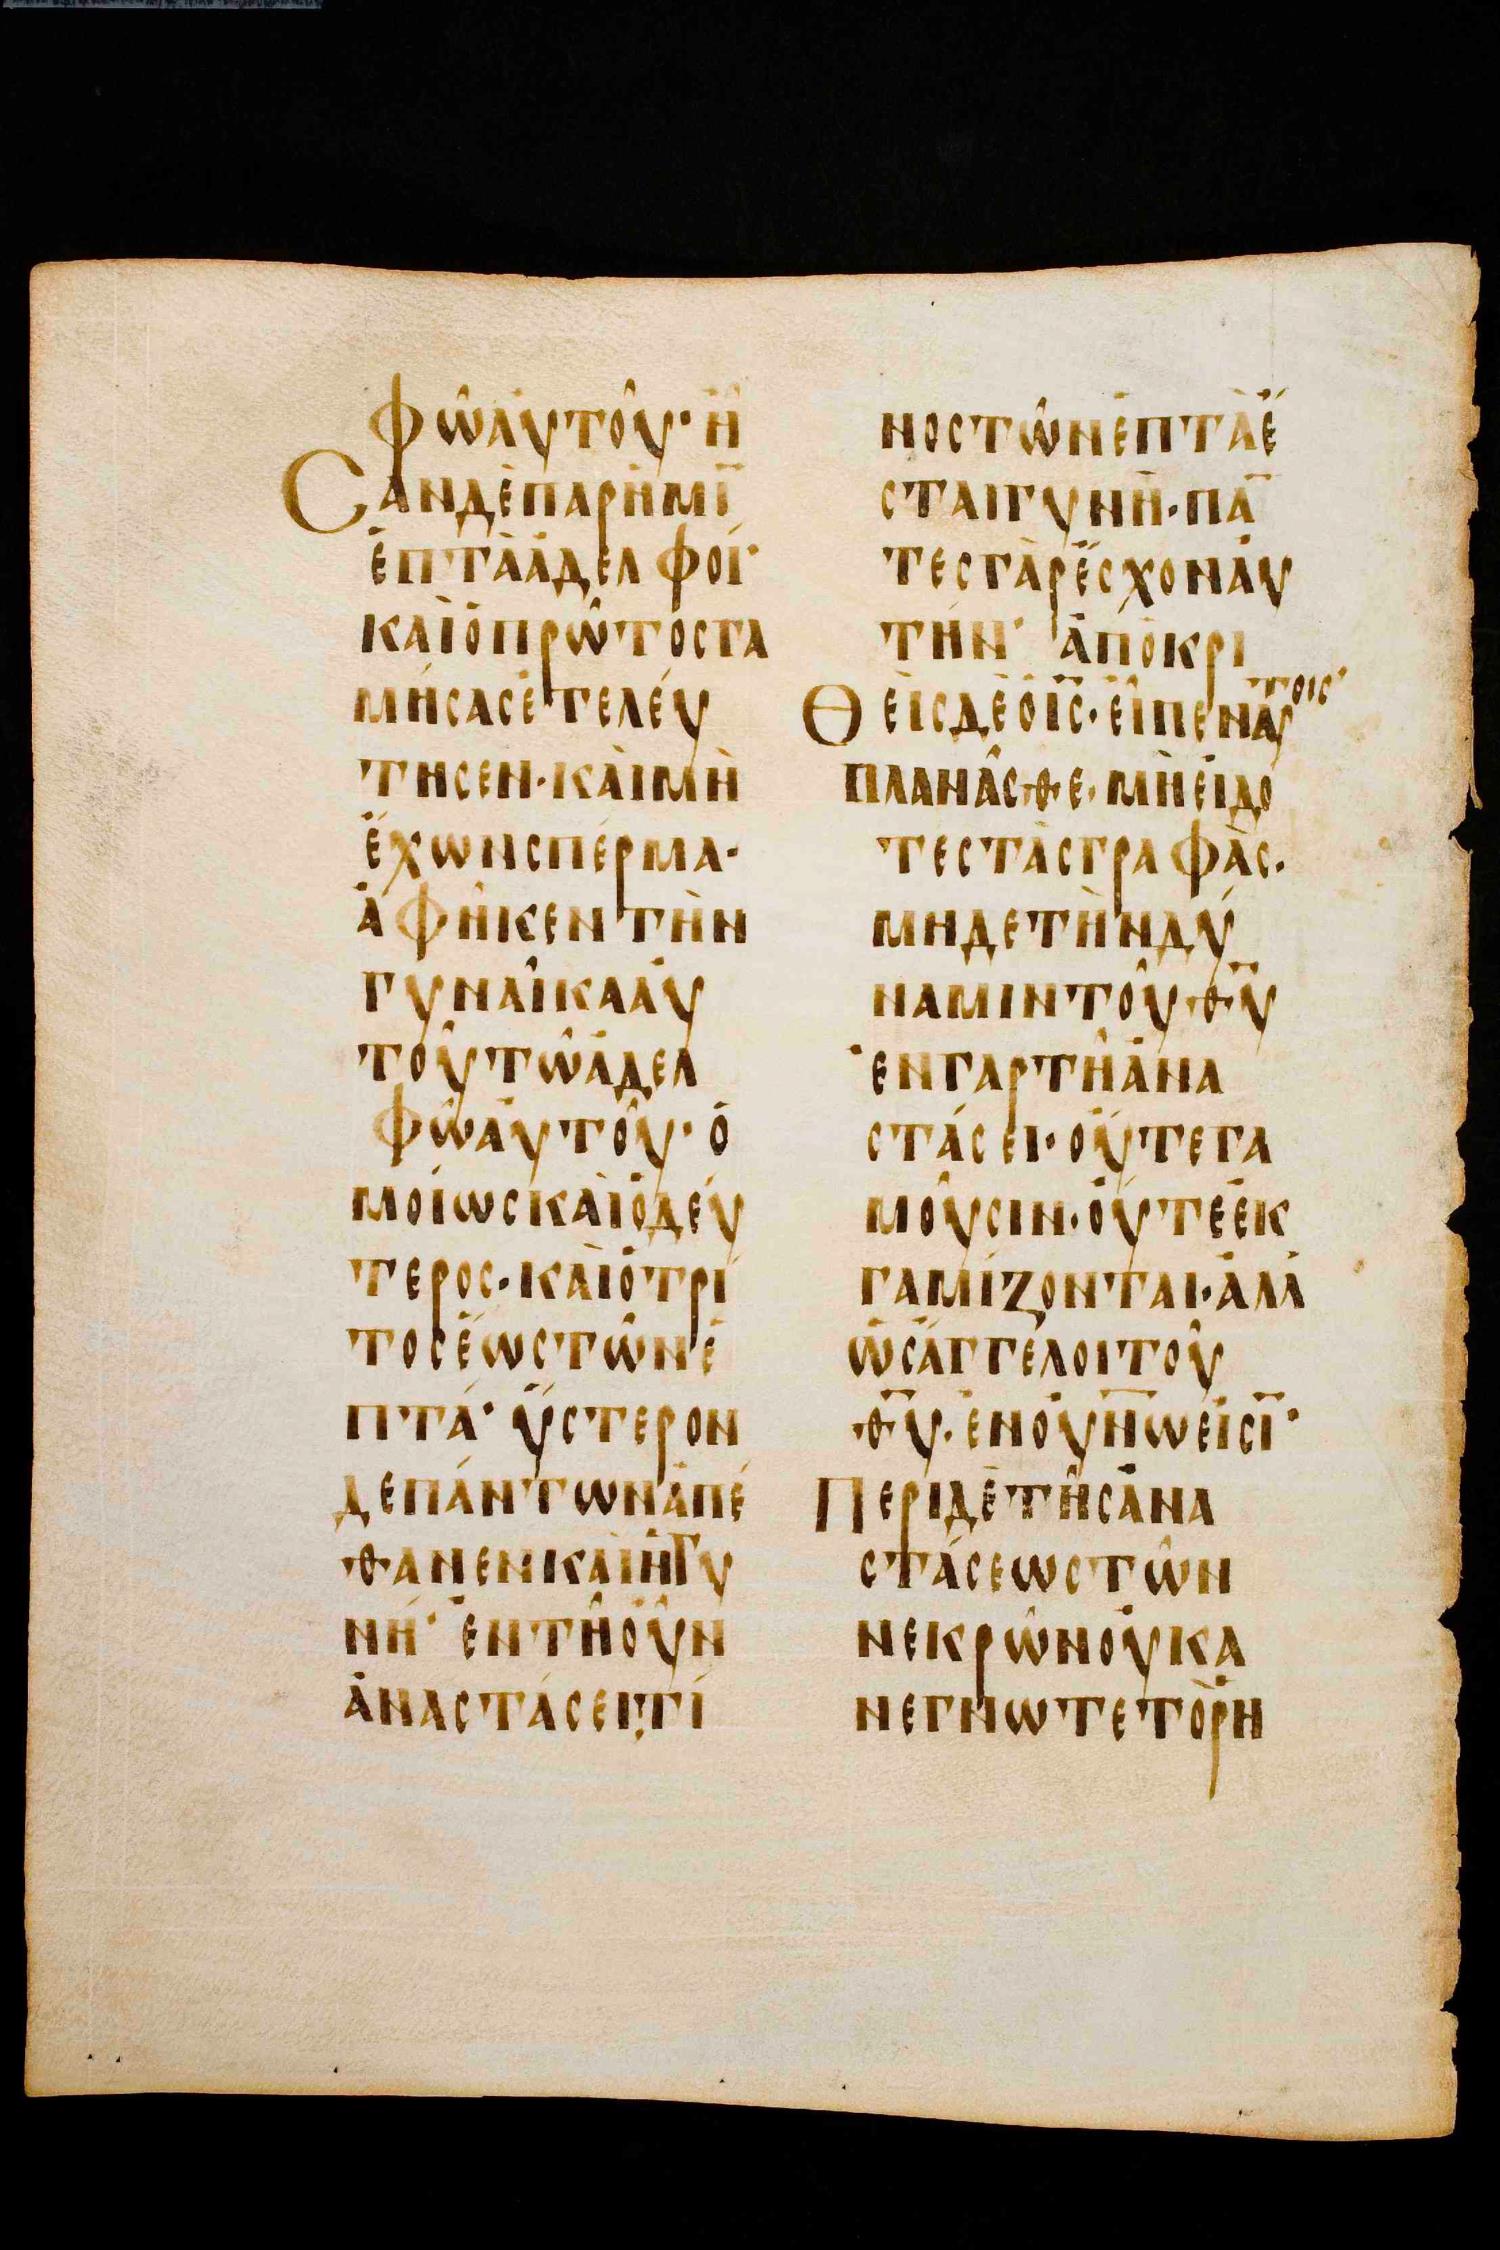 φῶἀυτοῦ· ἦ
Cἀνδὲπαρἡμῖ
ἑπτὰἀδελφοί·
καὶὁπρῶτοσγα
μήσασἐτελέυ
τησεν· καὶμὴ
ἔχωνσπέρμα·
ἀφῆκεντὴν
γυνᾶικαἀυ
τοῦτῶἀδελ
φῶἀυτοῦ· ὁ
μοίωσκαὶὁδέυ
τερος· καὶὁτρί
τοσἕωστῶνἑ
πτά· ὕστερον
δεπάντωνἀπέ
θανενκαὶἡγυ
νή· ἐντῆοῦν
ἀναστάσειτί
νοστῶνἑπτὰἔ
σταιγυνὴ· πα̅
τεσγὰρἔσχονἀυ
τήν· ἀποκρι
Θεὶσδὲὁι̅ς̅· ἔιπεναυτοις·
πλανᾶσθε· μὴἐιδο
τεστὰσγραφὰς·
μηδετὴνδύ
ναμιντοῦθ̅υ̅
ἐνγαρτῆἀνα
στάσει· οὔτεγα
μοῦσιν· ὄυτεἐκ
γαμίζονται· ἀλλ
ὡσἄγγελοιτοῦ
θ̅υ̅· ἐνοὐν̅ωεἰσι̅·
Περιδὲτῆσἀνα
στάσεωστῶν
νεκρῶνοὐκα
νεγνωτετὸρη